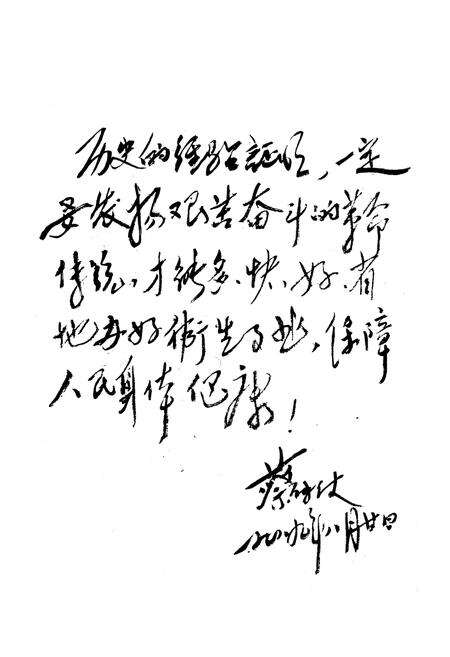 历史的经验証明，一定
要发扬艰苦奋斗的革命
传统，才能多、快、好、省
地办好衛生事业，保障
人民身体健康！
蔡
一九 年八月廿日